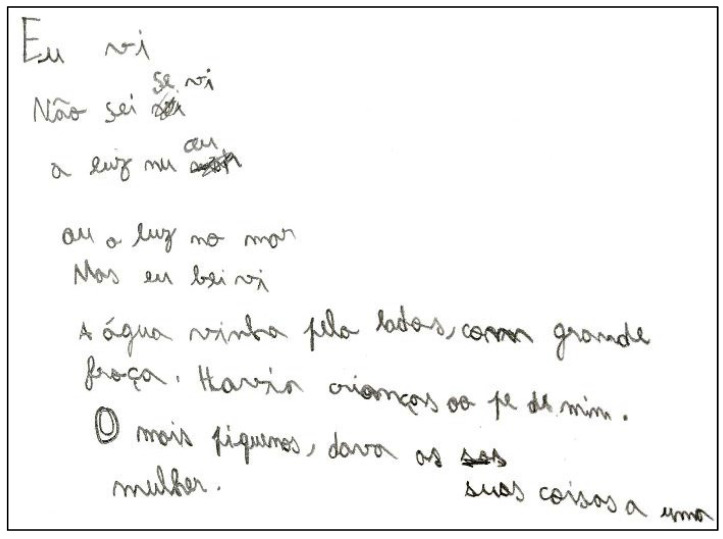 Eu vi
Não sei se vi
a luz nu ceu
ou a luz no mar
Mas eu bei vi
A água vinha pela lados, com grande
froça. Havia crianças ao pe de mim.
O mais piquenos, dava as
suas coisas a uma
mulher.